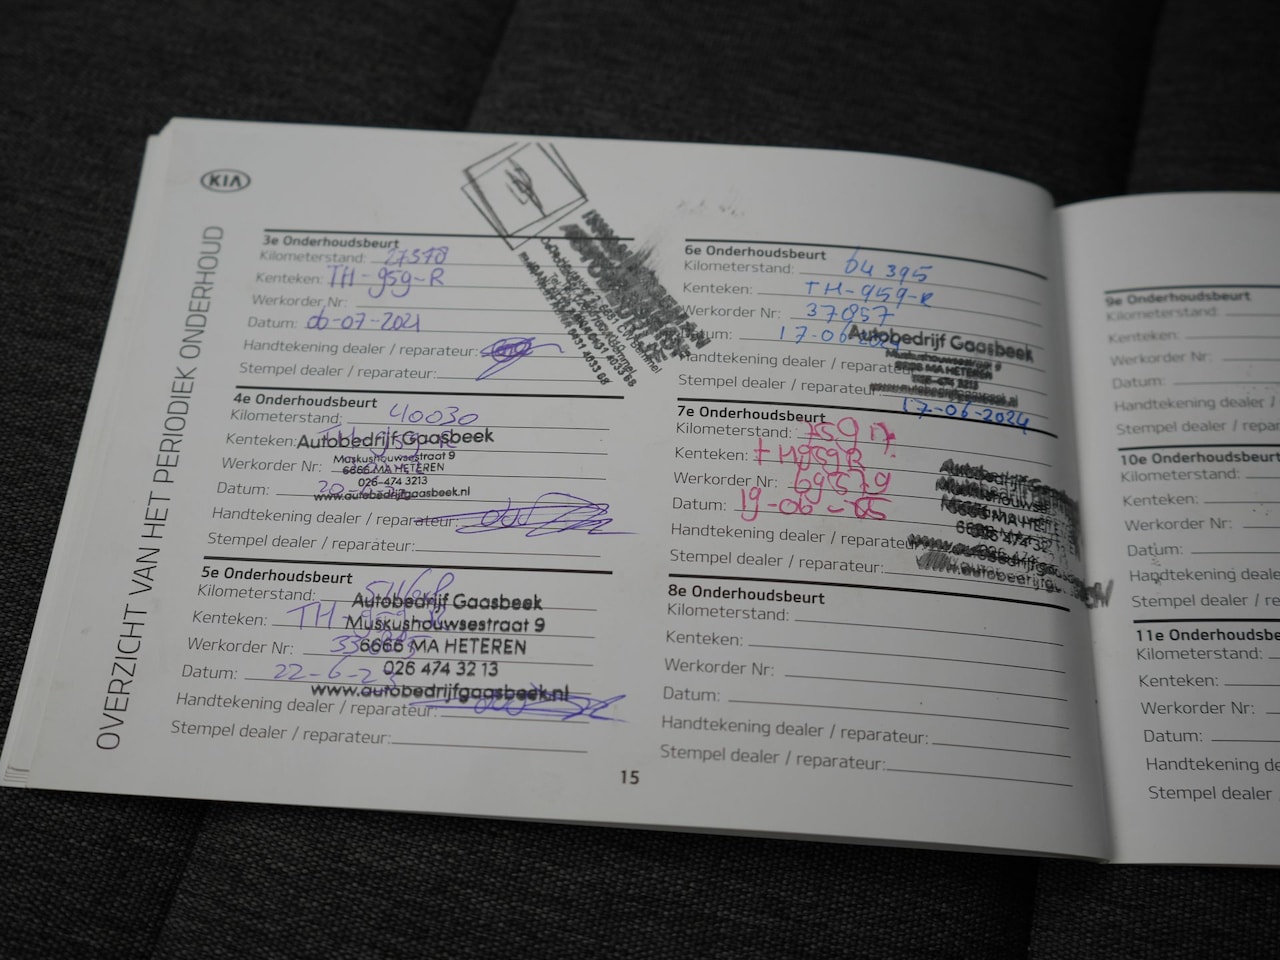 KIA
OVERZICHT VAN HET PERIODIEK ONDERHOUD
3e Onderhoudsbeurt
Kilometerstand: 27378
Kenteken: TH-959-R
Werkorder Nr:
Datum: 06-07-2021
Handtekening dealer / reparateur:
Stempel dealer / reparateur:
4e Onderhoudsbeurt
Kilometerstand: 40030
Kenteken:
Autobedrijf Gaasbeek
Muskushouwsestraat 9
Werkorder Nr:
6666 MA HETEREN
026-474 3213
Datum:
www.autobedrijfgaasbeek.nl
Handtekening dealer / reparateur:
Stempel dealer / reparateur:
5e Onderhoudsbeurt
Kilometerstand:
Autobedrijf Gaasbeek
Kenteken: TH-959-R
Muskushouwsestraat 9
Werkorder Nr:
6666 MA HETEREN
026 474 32 13
Datum: 22-6-23
www.autobedrijfgaasbeek.nl
Handtekening dealer / reparateur:
Stempel dealer / reparateur:
6e Onderhoudsbeurt
Kilometerstand: 64395
Kenteken: TH-959-R
Werkorder Nr: 37857
Datum: 17-06-2024
Autobedrijf Gaasbeek
Muskushouwsestraat 9
6666 MA HETEREN
026-474 3213
Handtekening dealer / reparateur:
www.autobedrijfgaasbeek.nl
Stempel dealer / reparateur:
17-06-2024
7e Onderhoudsbeurt
Kilometerstand: 75917
Kenteken: TH959R
Werkorder Nr:
Datum:
Handtekening dealer / reparateur:
Stempel dealer / reparateur:
8e Onderhoudsbeurt
Kilometerstand:
Kenteken:
Werkorder Nr:
Datum:
Handtekening dealer / reparateur:
Stempel dealer / reparateur:
15
9e Onderhoudsbeurt
Kilometerstand:
Kenteken:
Werkorder Nr:
Datum:
Handtekening dealer /
Stempel dealer /
10e Onderhoudsbeurt
Kilometerstand:
Kenteken:
Werkorder Nr:
Datum:
Handtekening deale
Stempel dealer /
11e Onderhoudsbe
Kilometerstand:
Kenteken:
Werkorder Nr:
Datum:
Handtekening de
Stempel dealer